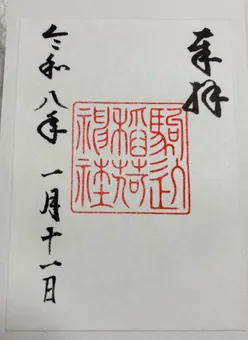 奉拝
駒込
稲荷
神社
令和八年 一月十一日